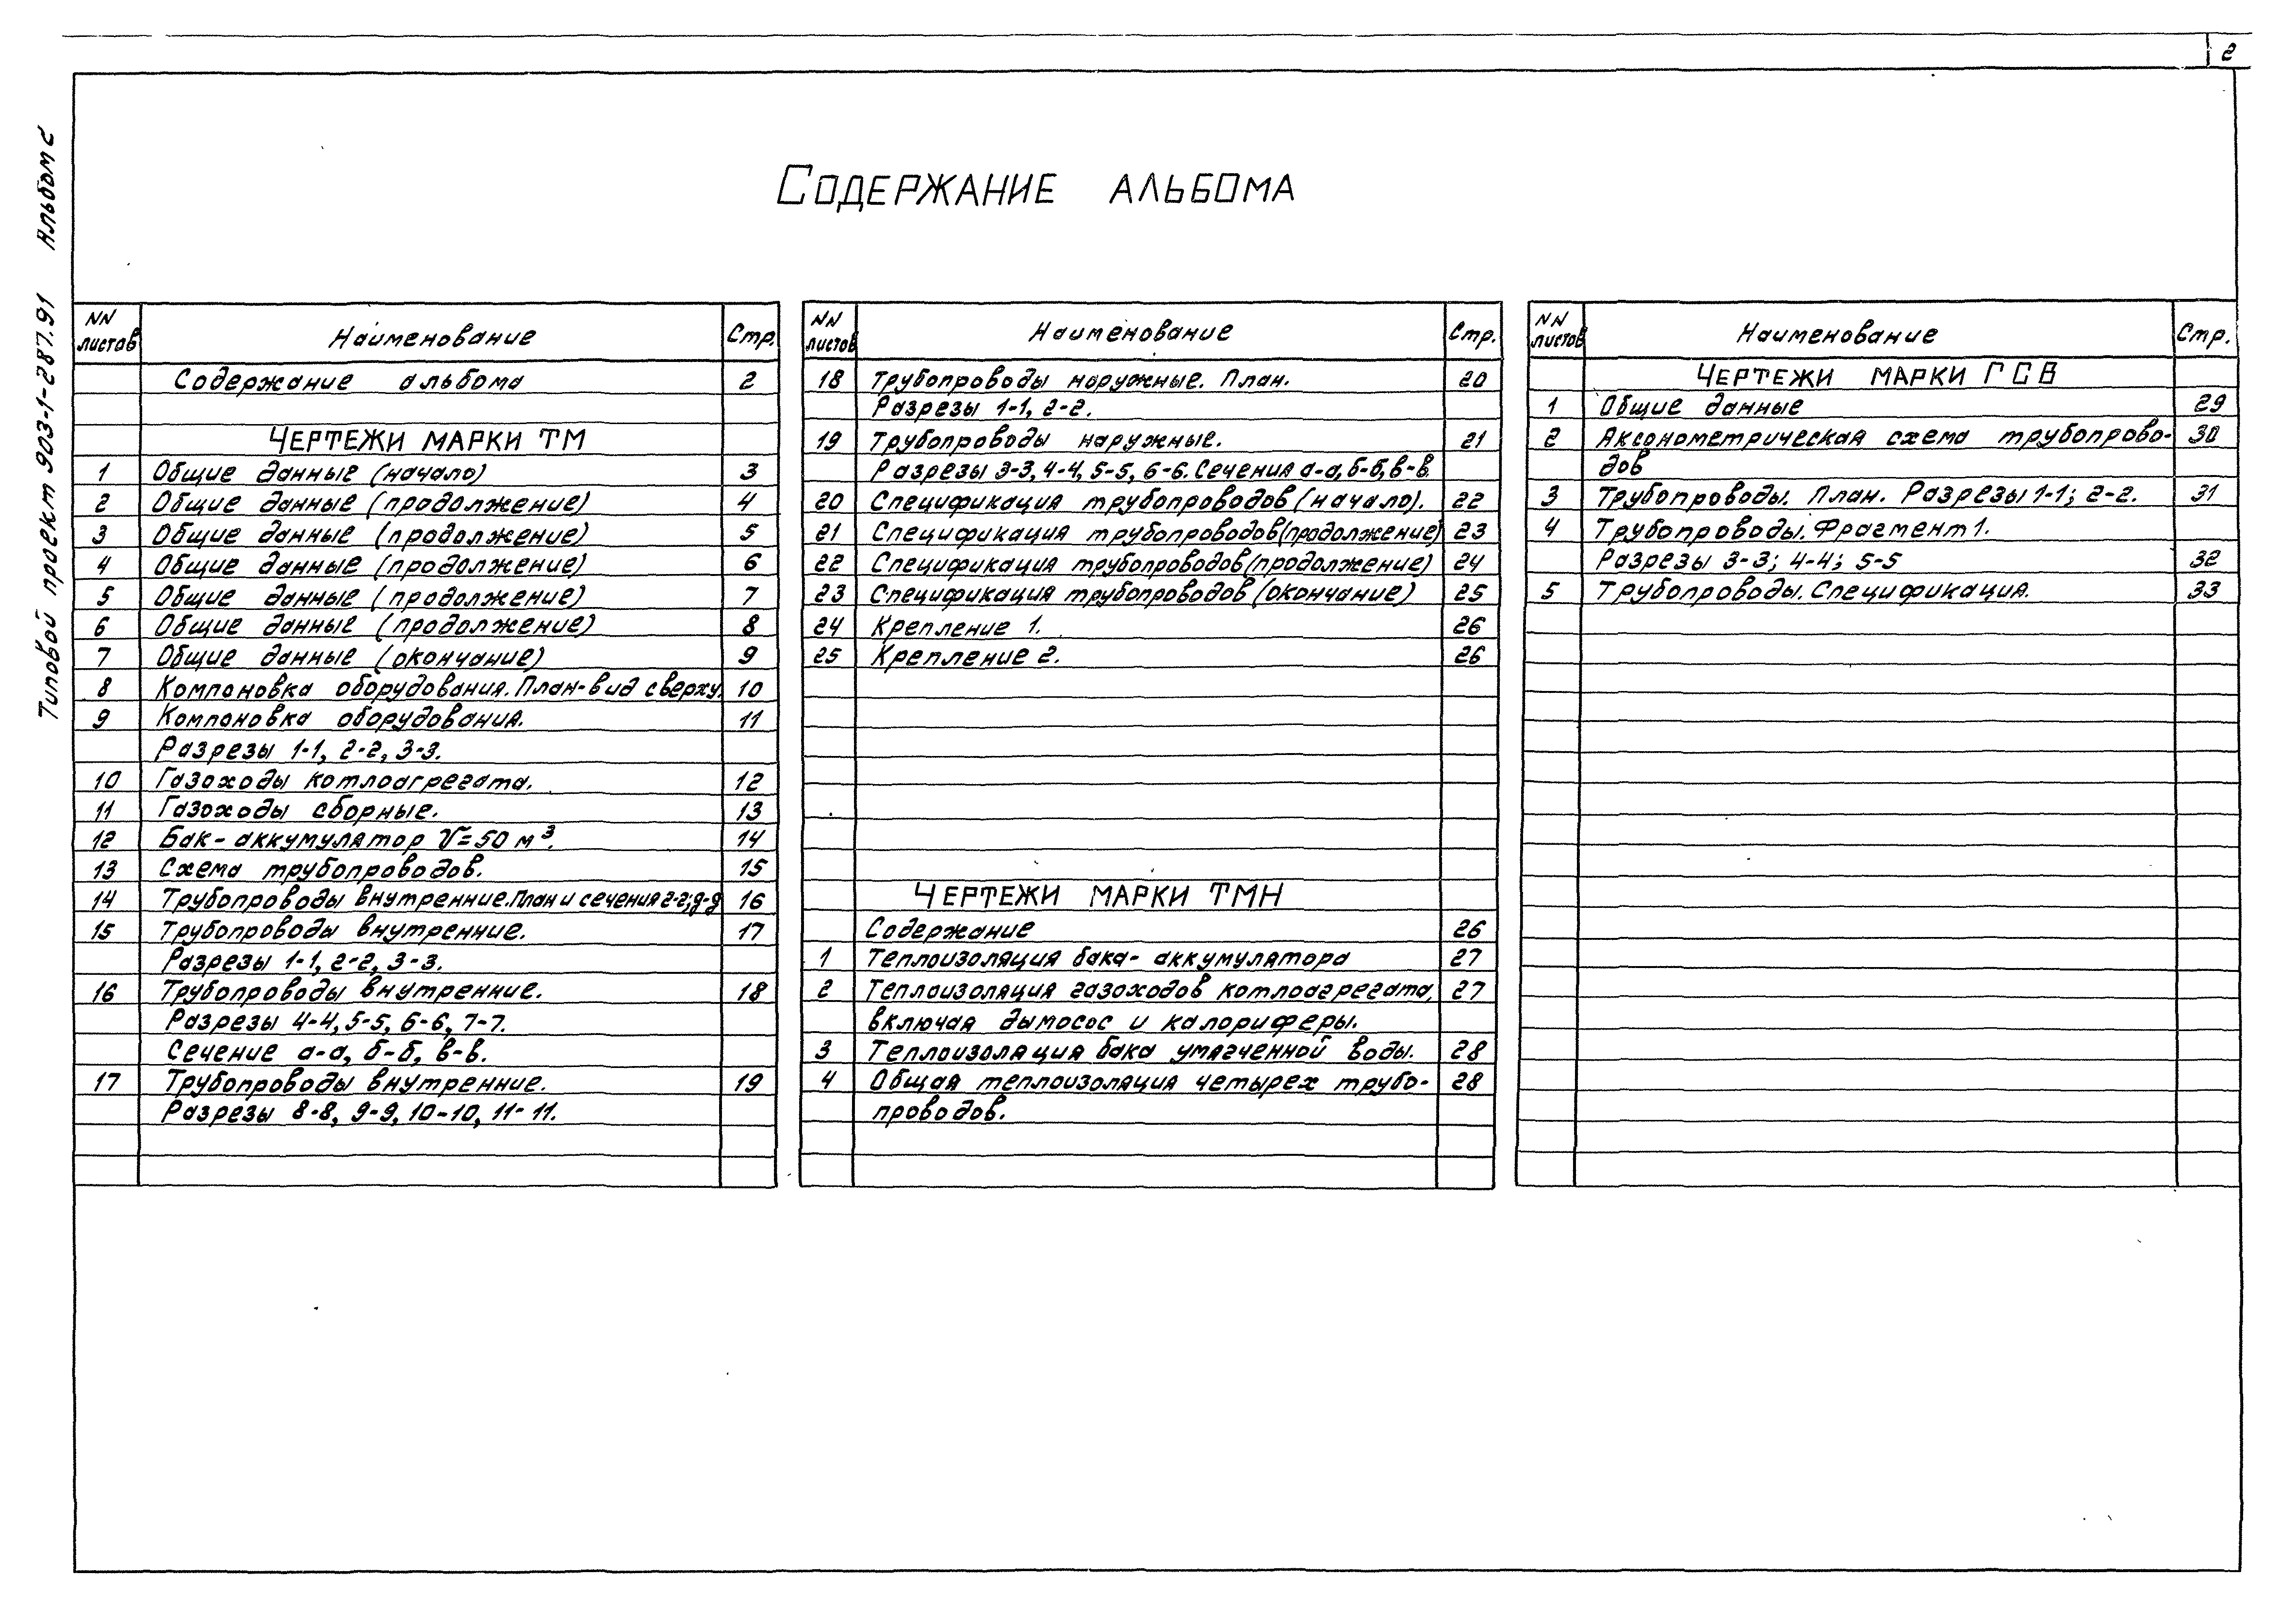 2
Типовой проект 903-1-287.91 Альбом 2
Содержание альбома
NN листов Наименование Стр.
Содержание альбома 2
Чертежи марки ТМ
1 Общие данные (начало) 3
2 Общие данные (продолжение) 4
3 Общие данные (продолжение) 5
4 Общие данные (продолжение) 6
5 Общие данные (продолжение) 7
6 Общие данные (продолжение) 8
7 Общие данные (окончание) 9
8 Компоновка оборудования. План-вид сверху. 10
9 Компоновка оборудования. 11
Разрезы 1-1, 2-2, 3-3.
10 Газоходы котлоагрегата. 12
11 Газоходы сборные. 13
12 Бак-аккумулятор V=50 м³. 14
13 Схема трубопроводов. 15
14 Трубопроводы внутренние. План и сечения г-г; д-д 16
15 Трубопроводы внутренние. 17
Разрезы 1-1, 2-2, 3-3.
16 Трубопроводы внутренние. 18
Разрезы 4-4, 5-5, 6-6, 7-7.
Сечение а-а, б-б, в-в.
17 Трубопроводы внутренние. 19
Разрезы 8-8, 9-9, 10-10, 11-11.
NN листов Наименование Стр.
18 Трубопроводы наружные. План. 20
Разрезы 1-1, 2-2.
19 Трубопроводы наружные. 21
Разрезы 3-3, 4-4, 5-5, 6-6. Сечения а-а, б-б, в-в.
20 Спецификация трубопроводов (начало). 22
21 Спецификация трубопроводов (продолжение) 23
22 Спецификация трубопроводов (продолжение) 24
23 Спецификация трубопроводов (окончание) 25
24 Крепление 1. 26
25 Крепление 2. 26
Чертежи марки ТМН
Содержание 26
1 Теплоизоляция бака-аккумулятора 27
2 Теплоизоляция газоходов котлоагрегата, 27
включая дымосос и калориферы.
3 Теплоизоляция бака умягченной воды. 28
4 Общая теплоизоляция четырех трубо- 28
проводов.
NN листов Наименование Стр.
Чертежи марки ГСВ
1 Общие данные 29
2 Аксонометрическая схема трубопрово- 30
дов
3 Трубопроводы. План. Разрезы 1-1; 2-2. 31
4 Трубопроводы. Фрагмент 1.
Разрезы 3-3; 4-4; 5-5 32
5 Трубопроводы. Спецификация. 33